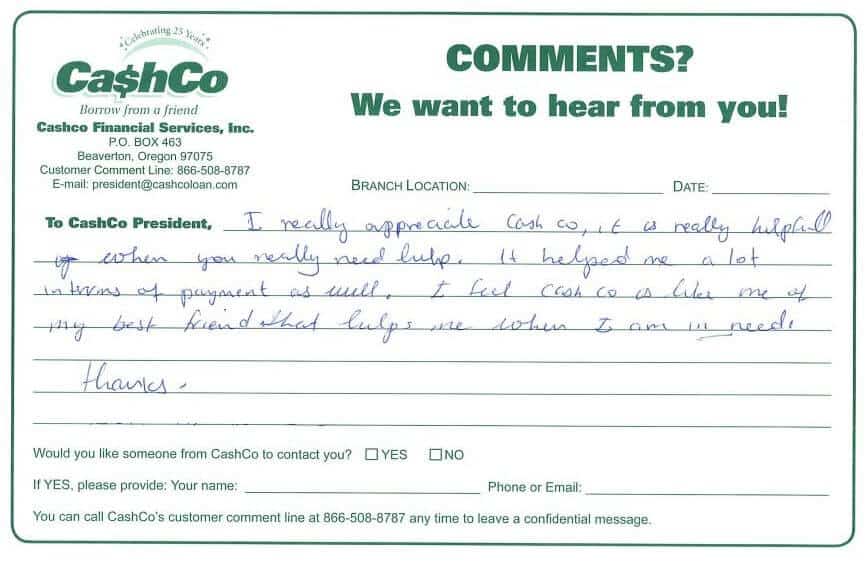 Celebrating 25 Years
Ca$hCo
Borrow from a friend
Cashco Financial Services, Inc.
P.O. BOX 463
Beaverton, Oregon 97075
Customer Comment Line: 866-508-8787
E-mail: president@cashcoloan.com
COMMENTS?
We want to hear from you!
BRANCH LOCATION: DATE:
To CashCo President, I really appreciate Cash co, it is really helpfull
when you really need help. It helped me a lot
in terms of payment as well. I feel Cash Co is like one of
my best friend that helps me when I am in need.
thanks.
Would you like someone from CashCo to contact you? YES NO
If YES, please provide: Your name: Phone or Email:
You can call CashCo's customer comment line at 866-508-8787 any time to leave a confidential message.